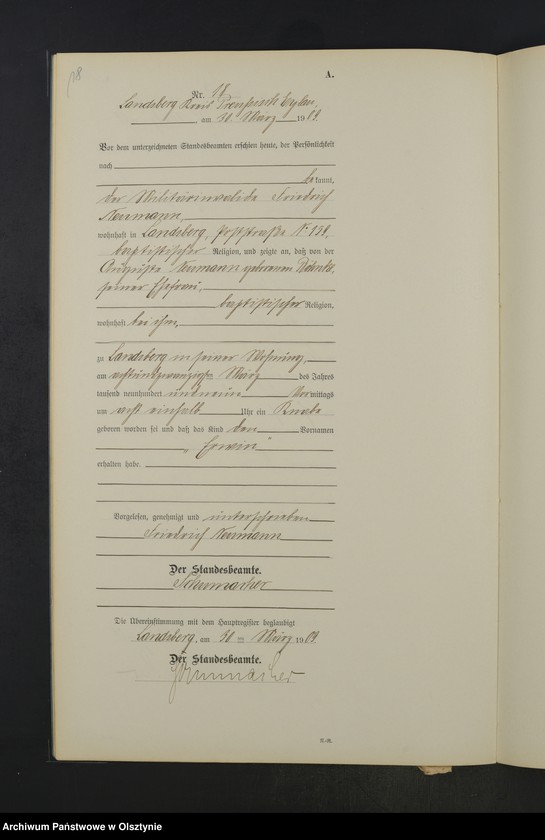 18
A.
Nr. 18.
Landsberg Kreis Preußisch Eylau,
am 30. März 1909.
Vor dem unterzeichneten Standesbeamten erschien heute, der Persönlichkeit
nach
bekannt,
der Militärinvalide Friedrich
Neumann,
wohnhaft in Landsberg, Poststraße No
baptistischer Religion, und zeigte an, daß von der
Auguste Neumann geborenen
seiner Ehefrau,
baptistischer Religion,
wohnhaft bei ihm,
zu Landsberg in seiner Wohnung,
am achtundzwanzigsten März des Jahres
tausend neunhundert und neun Vormittags
um acht einhalb Uhr ein Knabe
geboren worden sei und daß das Kind den Vornamen
„Erwin“
erhalten habe.
Vorgelesen, genehmigt und unterschrieben
Friedrich Neumann
Der Standesbeamte.
Schumacher
Die Übereinstimmung mit dem Hauptregister beglaubigt
Landsberg, am 30 ten März 1909.
Der Standesbeamte.
Schumacher
Archiwum Państwowe w Olsztynie